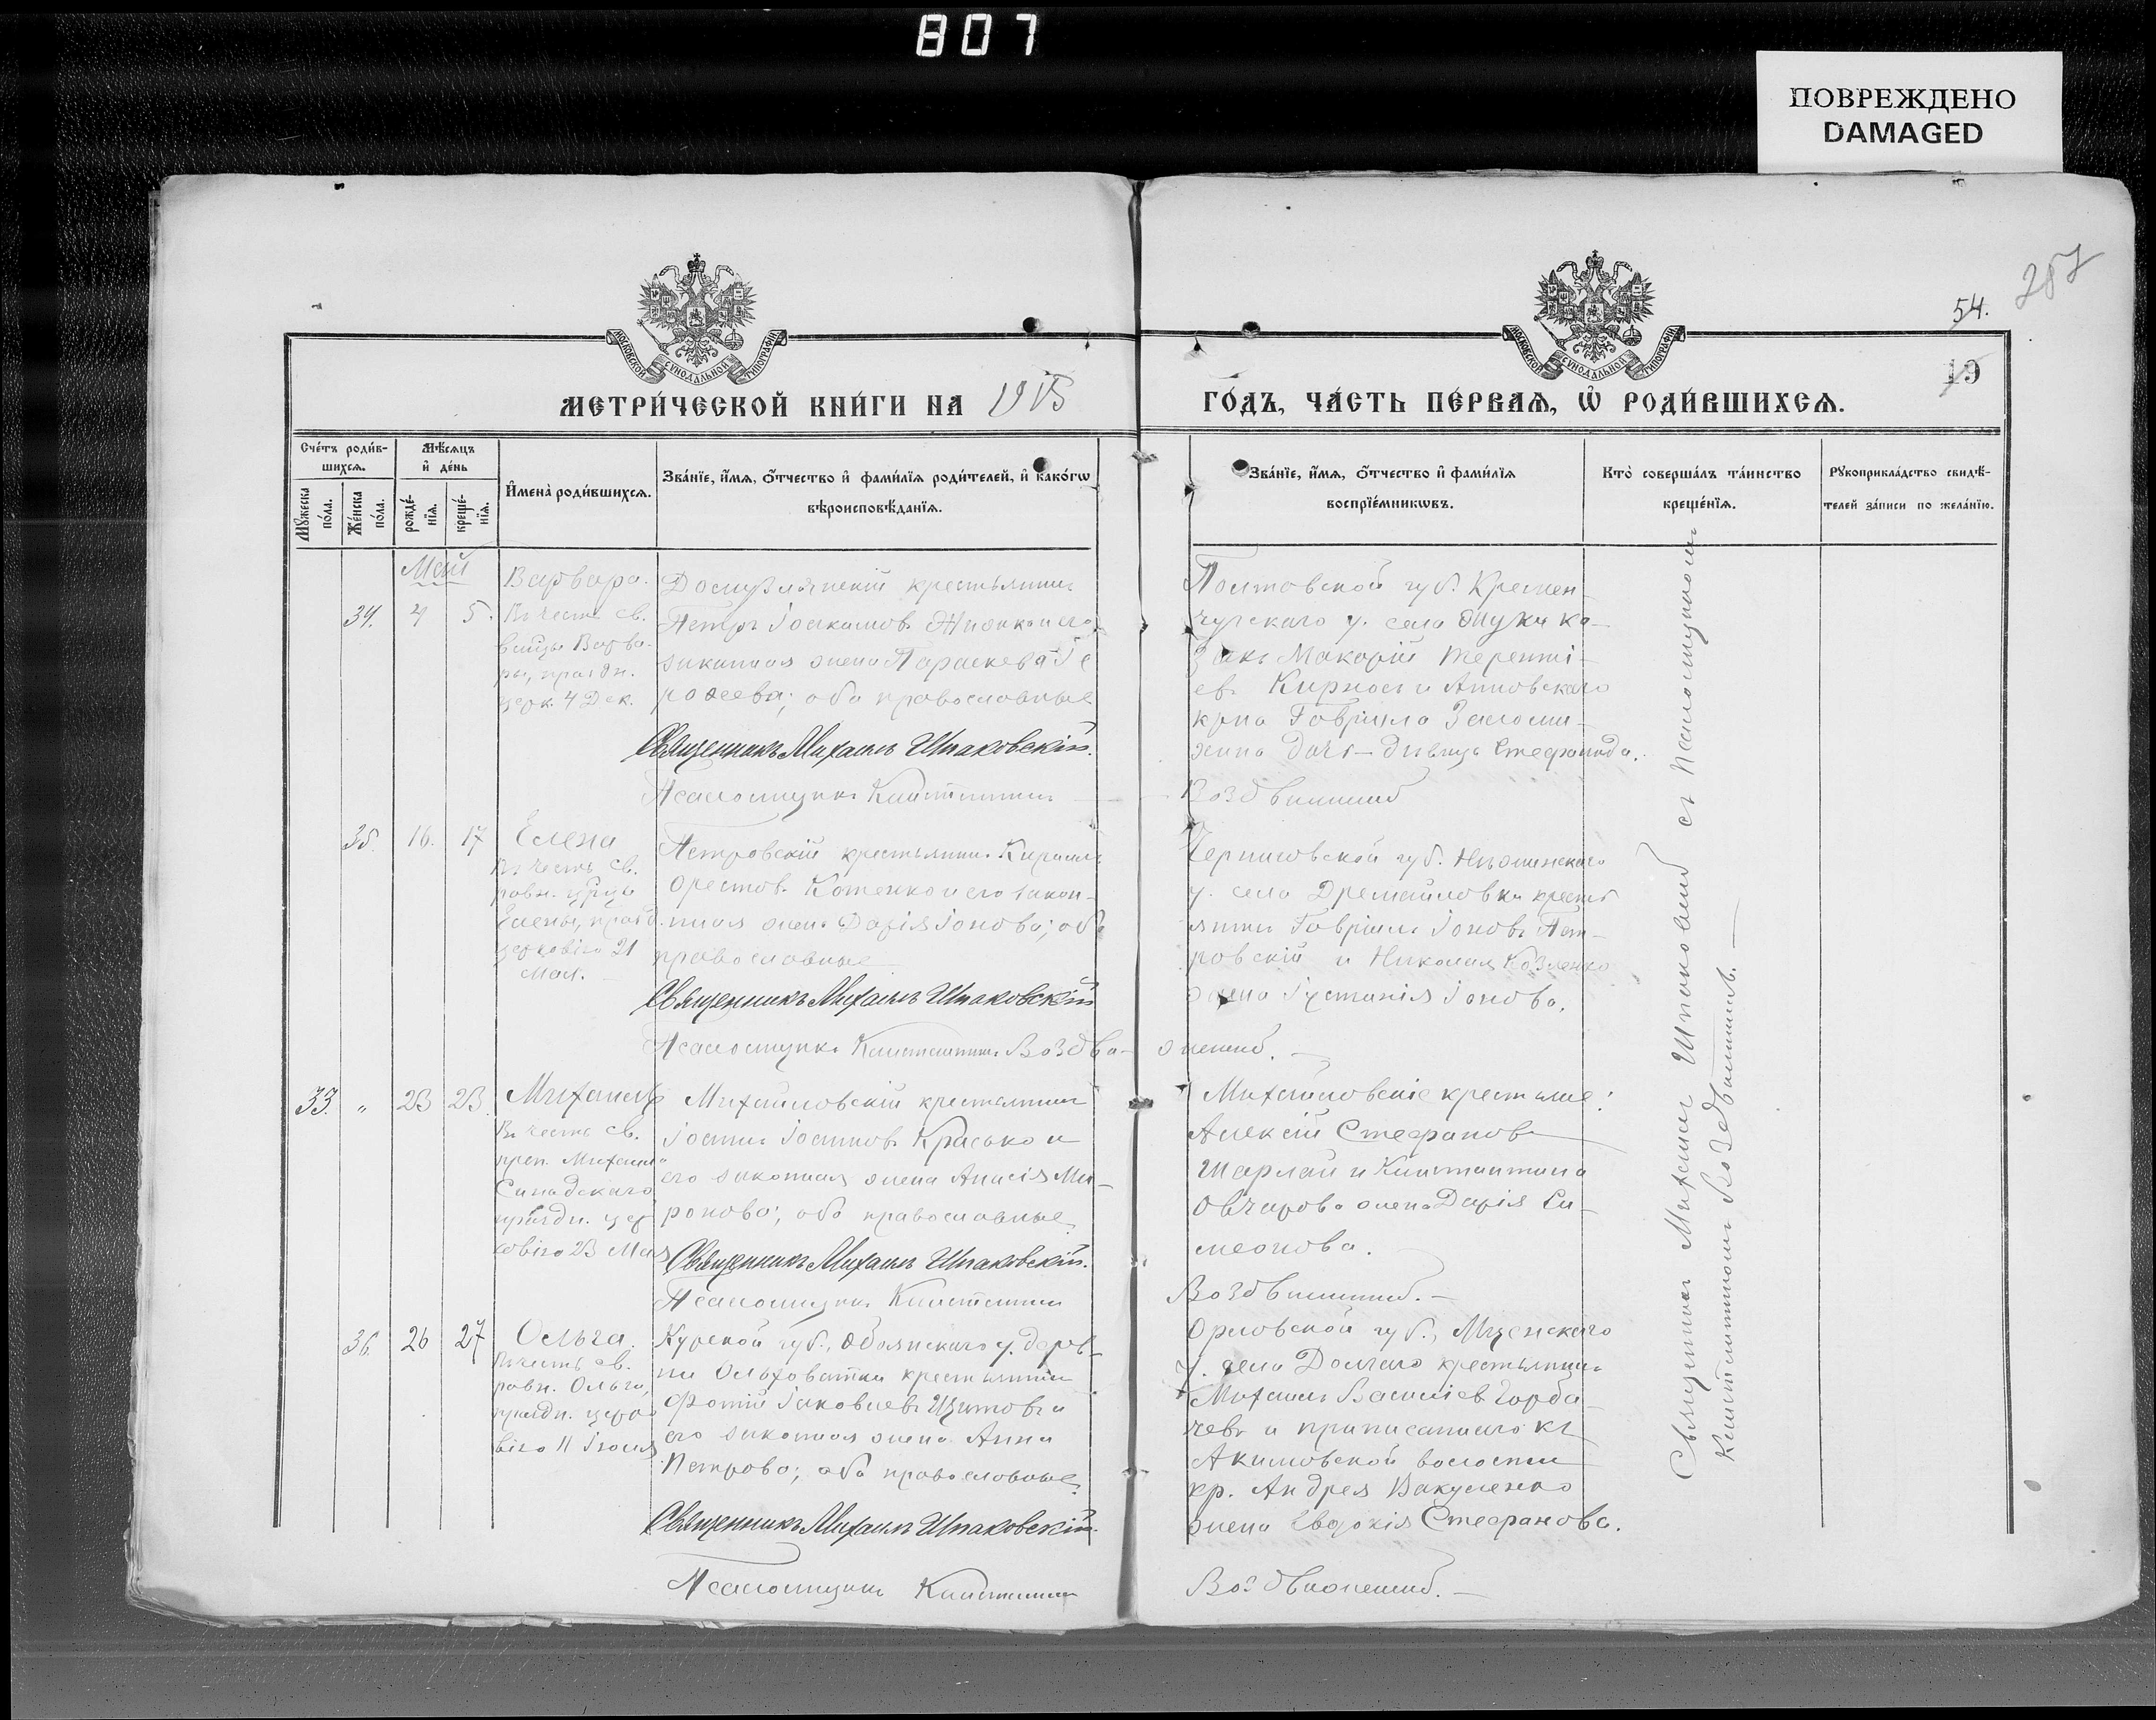 807
ПОВРЕЖДЕНО
DAMAGED
287
54.
19
МОСКОВСКОЙ СѴНОДАЛЬНОЙ ТИПОГРАФІИ
МОСКОВСКОЙ СѴНОДАЛЬНОЙ ТИПОГРАФІИ
МЕТРИ́ЧЕСКОЙ КНИ́ГИ НА 1915
ГО́ДЪ, ЧА́СТЬ ПЕ́РВАѦ, Ѿ РОДИ́ВШИХСѦ.
Сче́тъ роди́в-
шихсѧ.
Мꙋ́жеска по́ла.
Же́нска по́ла.
Мѣ́сѧцъ
и҆ де́нь
рожде́-
нїѧ.
креще́-
нїѧ.
И҆мена̀ роди́вшихсѧ.
Зва́нїе, и҆́мѧ, ѻ҆́тчество и҆ фами́лїѧ роди́телей, и҆ како́гѡ
вѣроисповѣ́данїѧ.
Зва́нїе, и҆́мѧ, ѻ҆́тчество и҆ фами́лїѧ
воспрїе́мникѡвъ.
Кто̀ соверша́лъ та́инство
креще́нїѧ.
Рꙋкоприкла́дство свидѣ́-
телей за́писи по жела́нїю.
Май
34. 4 5.
Варвара.
Въ честь св.
вмцы Варва-
ры, праздн.
церк. 4 Дек.
крестьянинъ
Петръ Іоакимов.
законная жена Параскева
; оба православные
Священникъ Михаилъ Шпаковскій.
Псаломщикъ Константинъ
Полтовской губ. Кремен-
чугскаго у. села ка-
закъ Макарій Теренті-
евъ и Анновскаго
Гавріила
дочь - дѣвица Стефанида.
Воздвиженскій
35. 16. 17
Елена
Въ честь св.
равн. црцы
Елены, празд.
церковію 21
Мая.
Петровскій крестьянин. Кирилл
Орестов. Котенко и его закон-
ная жена Дарія Іонова; оба
православные
Священникъ Михаилъ Шпаковскій
Псаломщикъ Константинъ Воздви-
женскій.
Черниговской губ. Нѣжинскаго
у. села Дремайловки кресть
янинъ Гавріилъ Іоновъ Пет-
ровскій и Николая Козленко
жена Іустинія Іонова.
33. " 23 23.
Михаилъ
Въ честь св.
преп. Михаила
Синадскаго
праздн. цер
ковію 23 Мая
Михайловскій крестьянин
Іоаннъ Іоаннов. Красько и
его законная жена Анисія Ми-
ронова; оба православные
Священникъ Михаилъ Шпаковскій.
Псаломщикъ Константинъ
Михайловскіе крестьяне:
Алексій Стефанов
Шарлай и Константина
Овчарова жена Дарія Си-
меонова.
Воздвиженскій.
36. 26 27
Ольга.
Въ честь св.
равн. Ольги,
праздн. церко
вію 11 Іюля
Курской губ., Обоянскаго у. дерев-
ни Ольховатки крестьянин
Фотій Іаковлев. и
его законная жена Анна
Петрова; оба православные
Священникъ Михаилъ Шпаковскій.
Псаломщикъ Константинъ
Орловской губ., Мценскаго
у. села Долгаго крестьянинъ
Михаилъ Василіев. Горба-
чевъ и приписаннаго къ
Акимовской волости
кр. Андрея Вакуленко
жена Евдокія Стефанова.
Воздвиженскій.
Священникъ Михаилъ Шпаковскій съ Псаломщикомъ
Константиномъ Воздвиженскимъ.